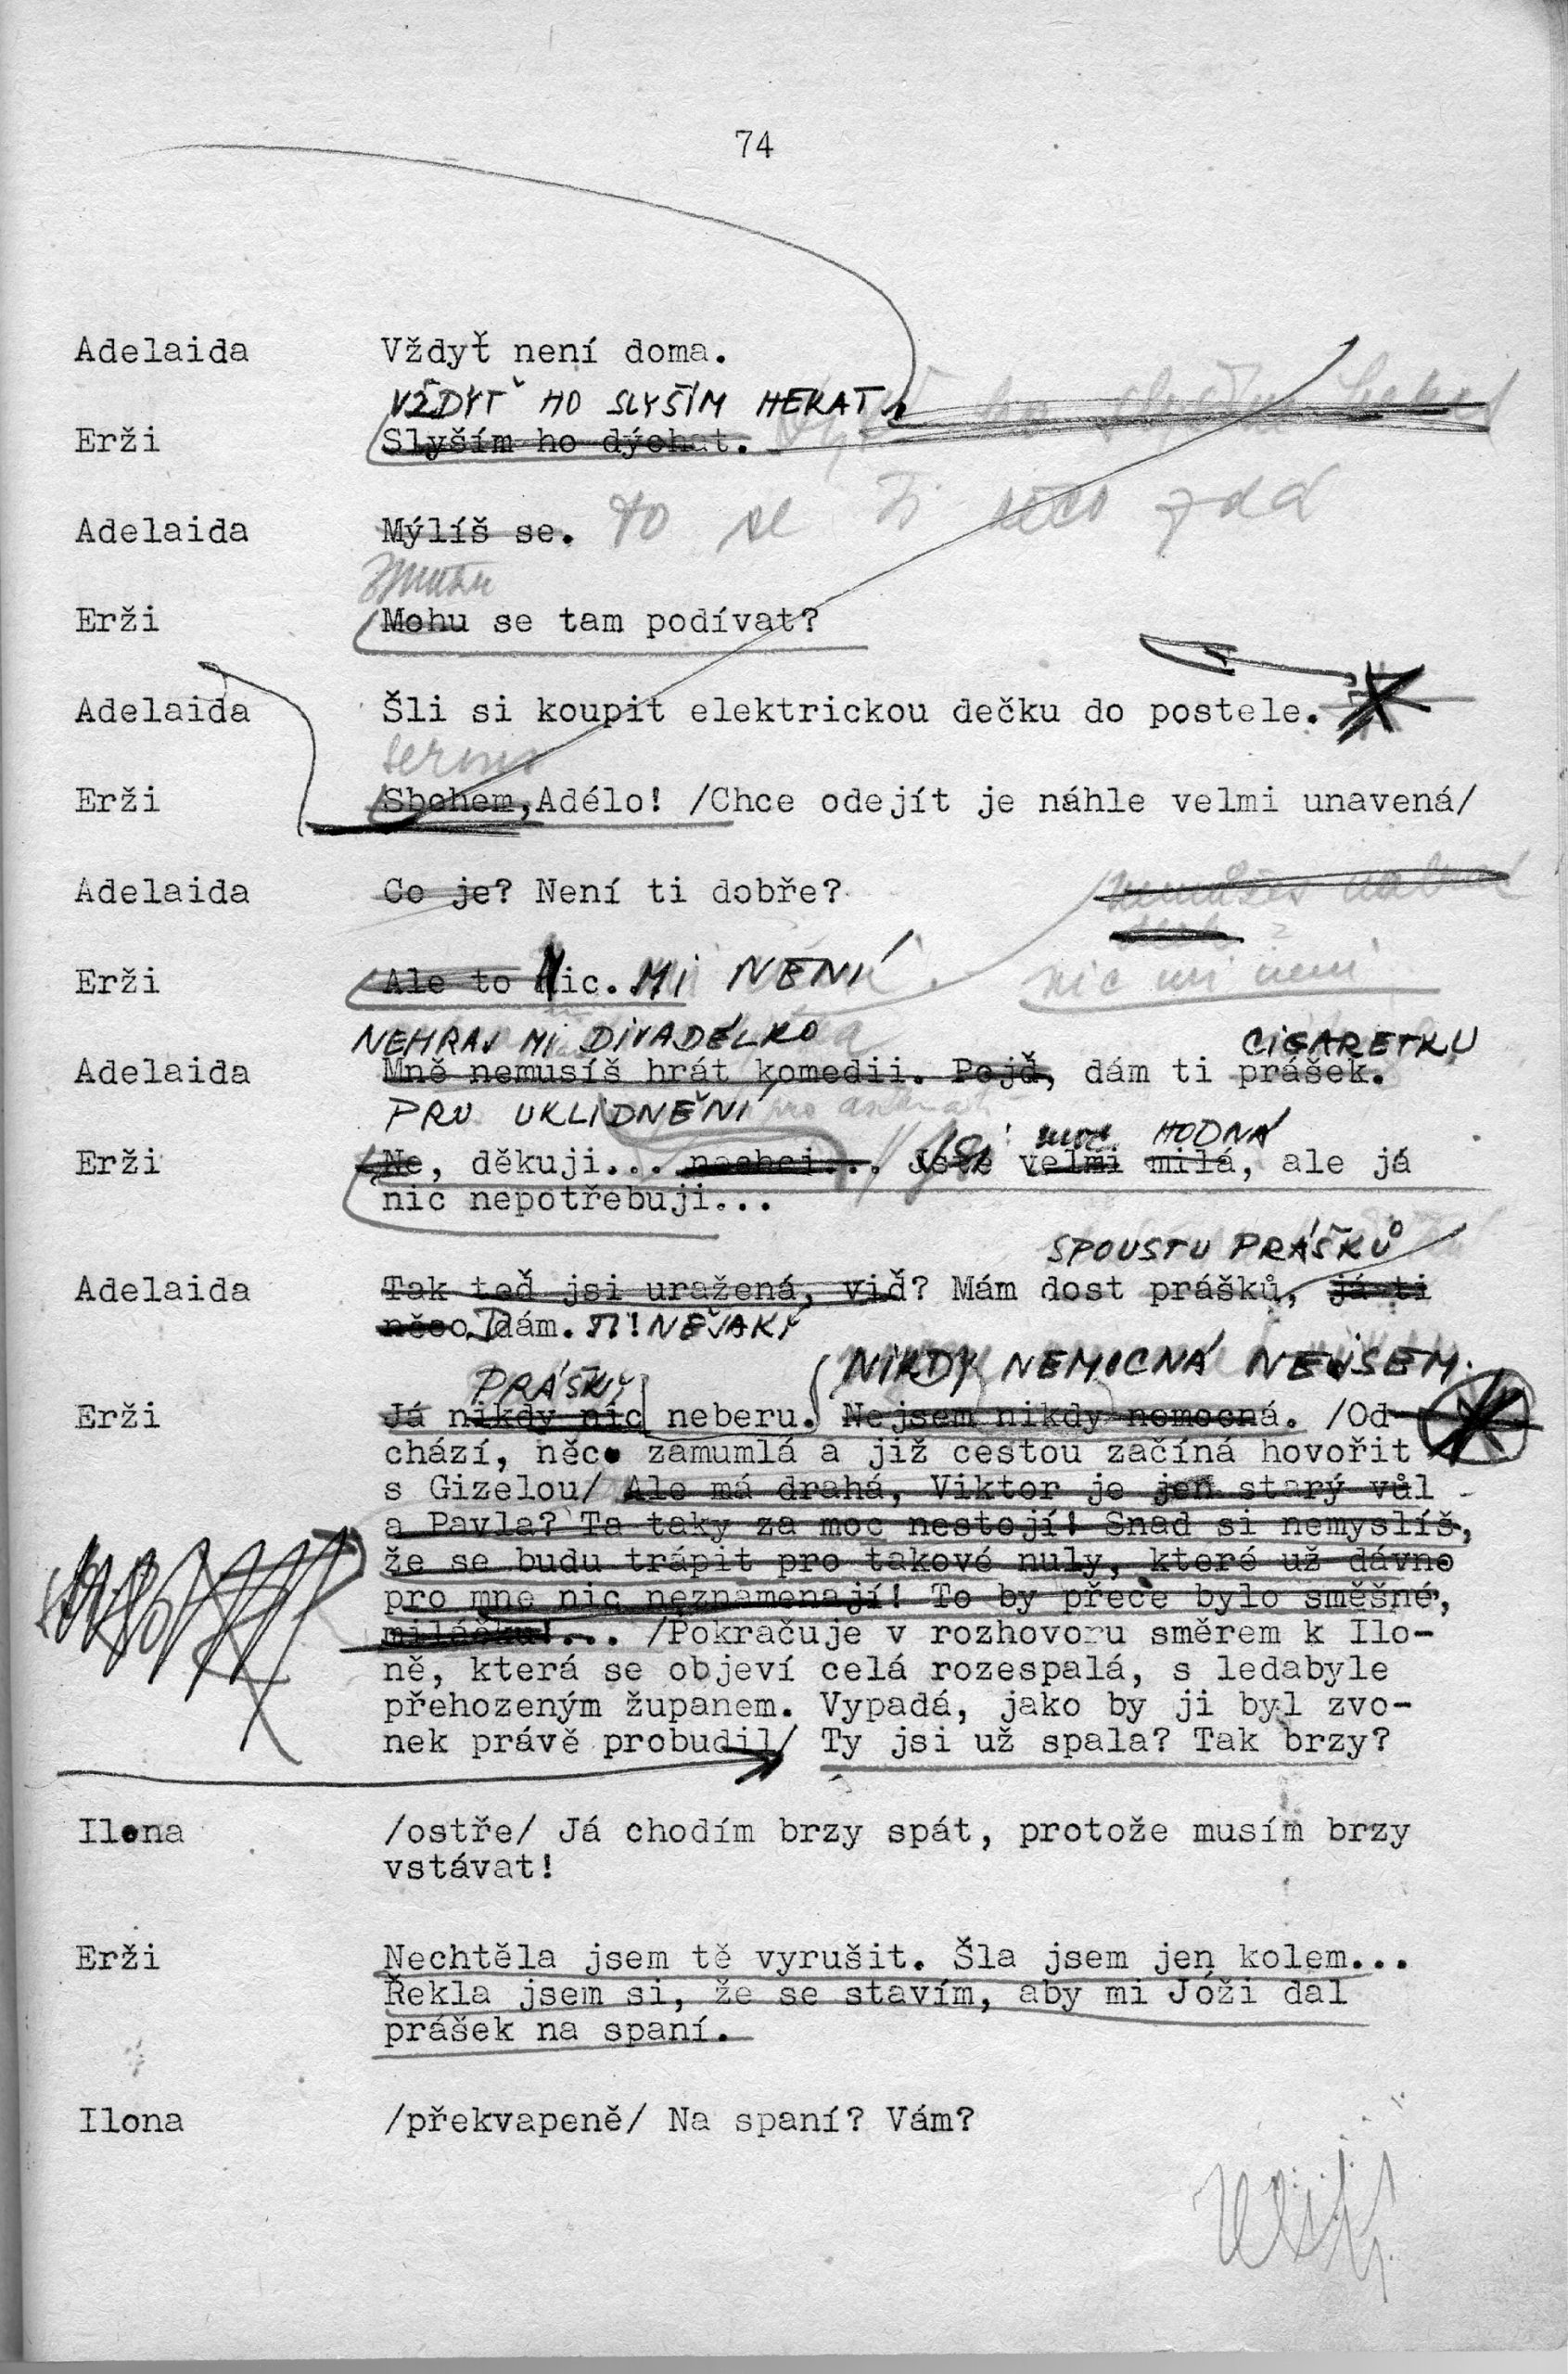 74
Adelaida Vždyť není doma.
VŽDYŤ HO SLYŠÍM HEKAT
Erži Slyším ho dýchat.
Adelaida Mýlíš se. to se ti něco zdá
Erži Mohu se tam podívat?
Adelaida Šli si koupit elektrickou dečku do postele.
servus
Erži Sbohem, Adélo! /Chce odejít je náhle velmi unavená/
Adelaida Co je? Není ti dobře? nemůžeš
Erži Ale to Nic. MI NENÍ nic mi není
NEHRAJ MI DIVADÉLKO CIGARETKU
Adelaida Mně nemusíš hrát komedii. Pojď, dám ti prášek.
PRO UKLIDNĚNÍ
moc HODNÁ
Erži Ne, děkuji... nechci... Jste velmi milá, ale já
nic nepotřebuji...
SPOUSTU PRÁŠKŮ
Adelaida Tak teď jsi uražená, viď? Mám dost prášků, já ti
něco dám. TI! NĚJAKÝ
NIKDY NEMOCNÁ NEJSEM.
PRÁŠKY
Erži Já nikdy nic neberu. Nejsem nikdy nemocná. /Od-
chází, něco zamumlá a již cestou začíná hovořit
s Gizelou/ Ale má drahá, Viktor je jen starý vůl
a Pavla? Ta taky za moc nestojí! Snad si nemyslíš,
že se budu trápit pro takové nuly, které už dávno
pro mne nic neznamenají! To by přece bylo směšné,
miláčku!... /Pokračuje v rozhovoru směrem k Ilo-
ně, která se objeví celá rozespalá, s ledabyle
přehozeným županem. Vypadá, jako by ji byl zvo-
nek právě probudil/ Ty jsi už spala? Tak brzy?
Ilona /ostře/ Já chodím brzy spát, protože musím brzy
vstávat!
Erži Nechtěla jsem tě vyrušit. Šla jsem jen kolem...
Řekla jsem si, že se stavím, aby mi Jóži dal
prášek na spaní.
Ilona /překvapeně/ Na spaní? Vám?